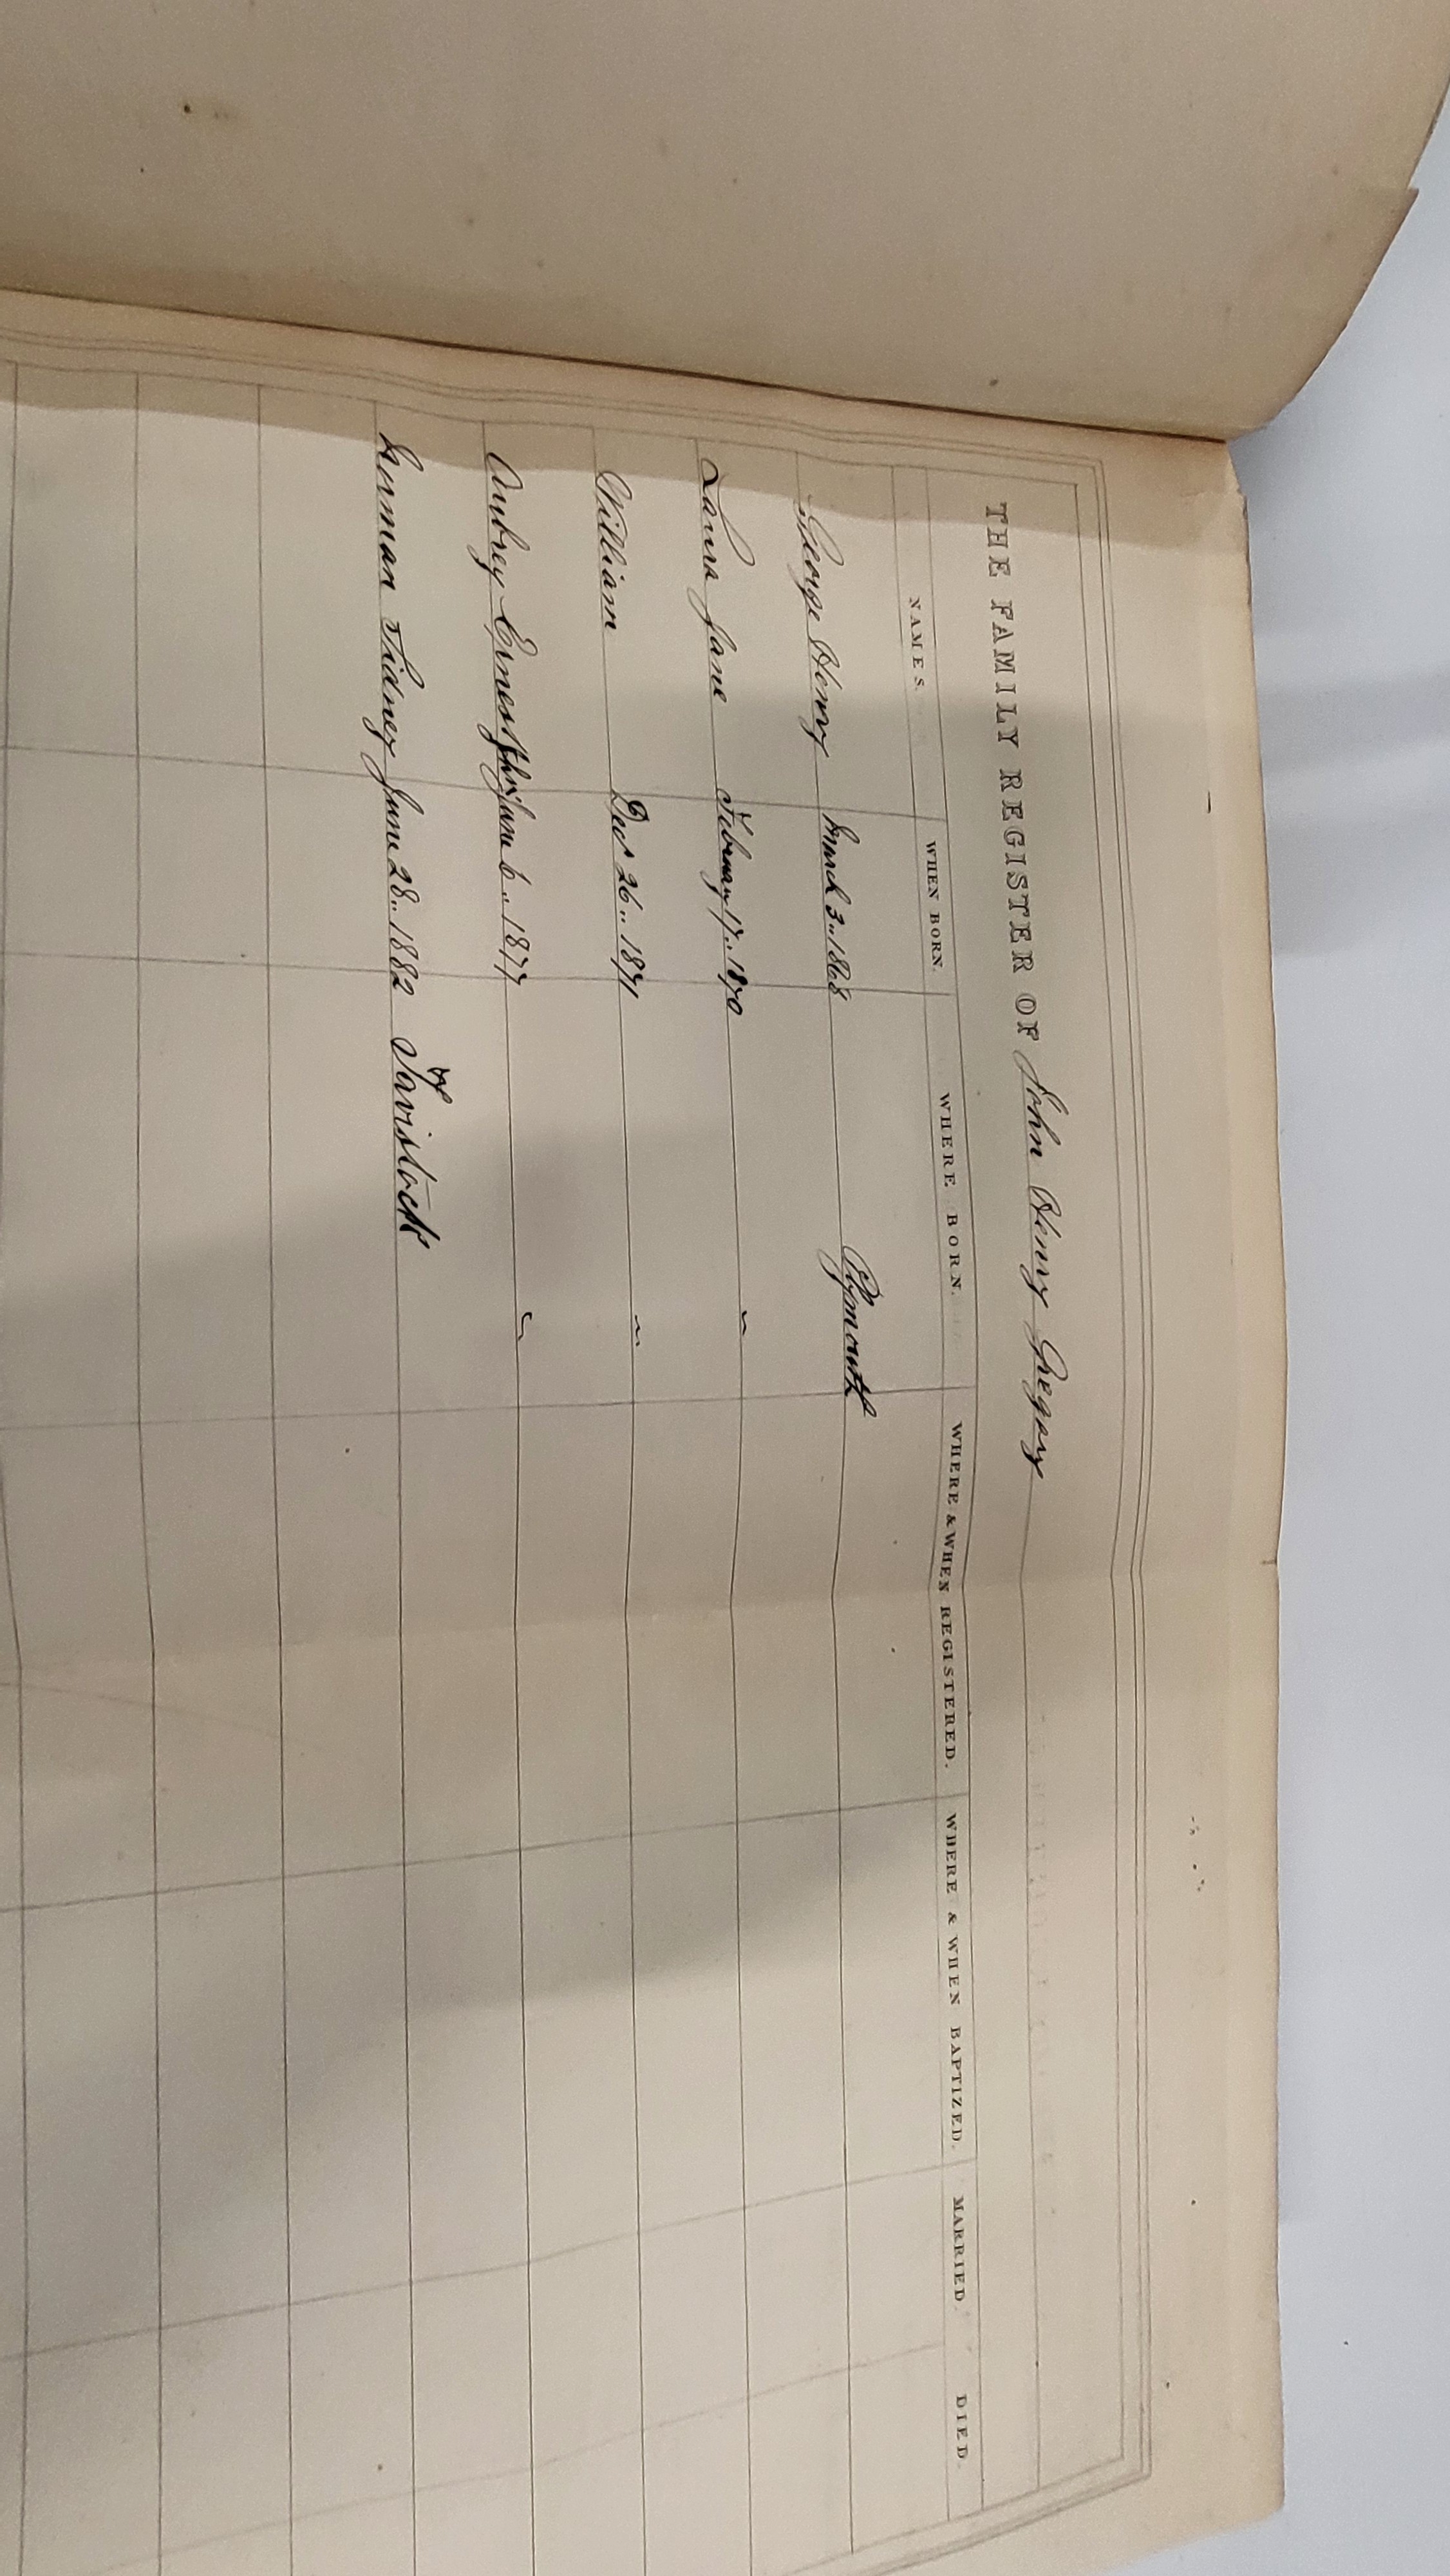 THE FAMILY REGISTER OF John Henry Gregory
NAMES. WHEN BORN. WHERE BORN. WHERE & WHEN REGISTERED. WHERE & WHEN BAPTIZED. MARRIED. DIED.
George Henry March 3.. 1868 Plymouth
Laura Jane February 17.. 1870 "
William Decr 26.. 1871 "
Aubrey Ernest June 6.. 1877 "
Herman Sidney June 28.. 1882 Tavistock